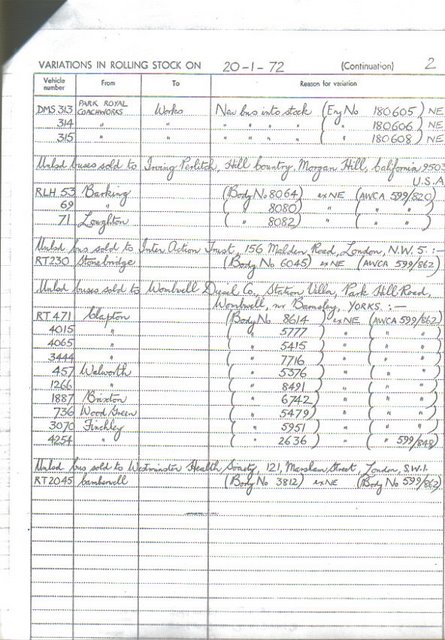 VARIATIONS IN ROLLING STOCK ON 20-1-72 (Continuation) 2
Vehicle number From To Reason for variation
DMS 313 PARK ROYAL COACHWORKS Works New bus into stock (Eng No 180605) NE
314 " " " " " " ( " 180606) NE
315 " " " " " " ( " 180608) NE
Unlsd buses sold to Irving Perlitch, Hill Country, Morgan Hill, California 9503
U.S.A
RLH 53 Barking (Body No 8064) ex NE (AWCA 599/820)
69 " ( " 8080) " ( " " )
71 Loughton ( " 8082) " ( " " )
Unlsd bus sold to Inter Action Trust, 156 Malden Road, London, N.W.5 :-
RT230 Stonebridge (Body No 6045) ex NE (AWCA 599/862)
Unlsd buses sold to Wombwell Diesel Co, Station Villa, Park Hill Road,
Wombwell, nr Barnsley, YORKS. :-
RT 471 Clapton (Body No 8614) ex NE (AWCA 599/862)
4015 " ( " 5777) " ( " " )
4065 " ( " 5415) " ( " " )
3444 " ( " 7716) " ( " " )
457 Walworth ( " 5376) " ( " " )
1266 " ( " 8491) " ( " " )
1887 Brixton ( " 6742) " ( " " )
736 Wood Green ( " 5479) " ( " " )
3070 Finchley ( " 5951) " ( " " )
4254 " ( " 2636) " ( " 599/848)
Unlsd bus sold to Westminster Health Society, 121, Marsham Street, London, S.W.1.
RT2045 Camberwell (Body No 3812) ex NE (Body No 599/862)